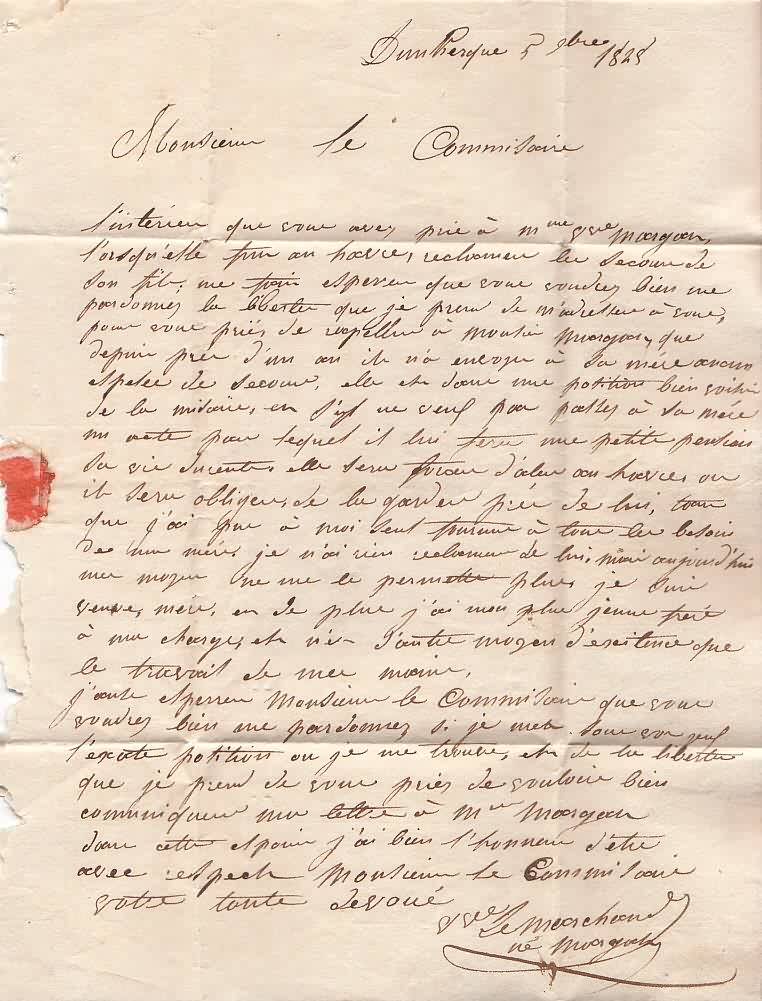 Dunkerque 5 9bre 1828
Monsieur le Commisaire
l'intérieu que vous aves prie à Mme vve Morgan,
l'orsqu'elle fun au havre, reclamer les secour de
son fils, me fair esperer que vous voudres bien me
pardonner la liberter que je prend de m'adresser à vous,
pour vous priés de rapeller à Monsieur Morgan, que
depuis près d'un an il n'a envoyer à sa mére aucun
espece de secour, elle et dans une potition bien voisin
de la misaire, en s'yl ne veuf pas passes à sa mere
un acte par lequel il lui fera une petite pension
sa vie durente, elle sera forcer d'aler au havre, ou
il sera obliger, de la garder prés de lui, tan
que j'ai pue à moi seul fournir à tous les besoin
de ma mére, je n'ai rien reclamer de lui, mais aujourd'hui
mes moyen ne me le permette plus, je suis
veuve, mére, en de plus j'ai mon plus jeune frere
à ma charge, et n'es d'autre moyen d'existence que
le travail de mes mains,
j'ause esperrer Monsieur le Commisair que vous
voudres bien me pardonnes si je mets sous vos yeuf
l'exate potition ou je me trouve, et de la liberter
que je prend de vous priés de vouloir bien
communiquer ma lettre à Mr Morgan
dans cette espoir j'ai bien l'honneur d'être
avec respect Monsieur le Commisair
votre toute devoué
vve Le Marchand
né Morgan